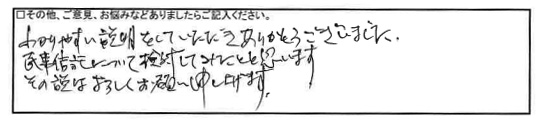 □その他、ご意見、お悩みなどありましたらご記入ください。
わかりやすい説明をしていただきありがとうございました。
民事信託について検討してみたいと思います
その説はよろしくお願い申し上げます。